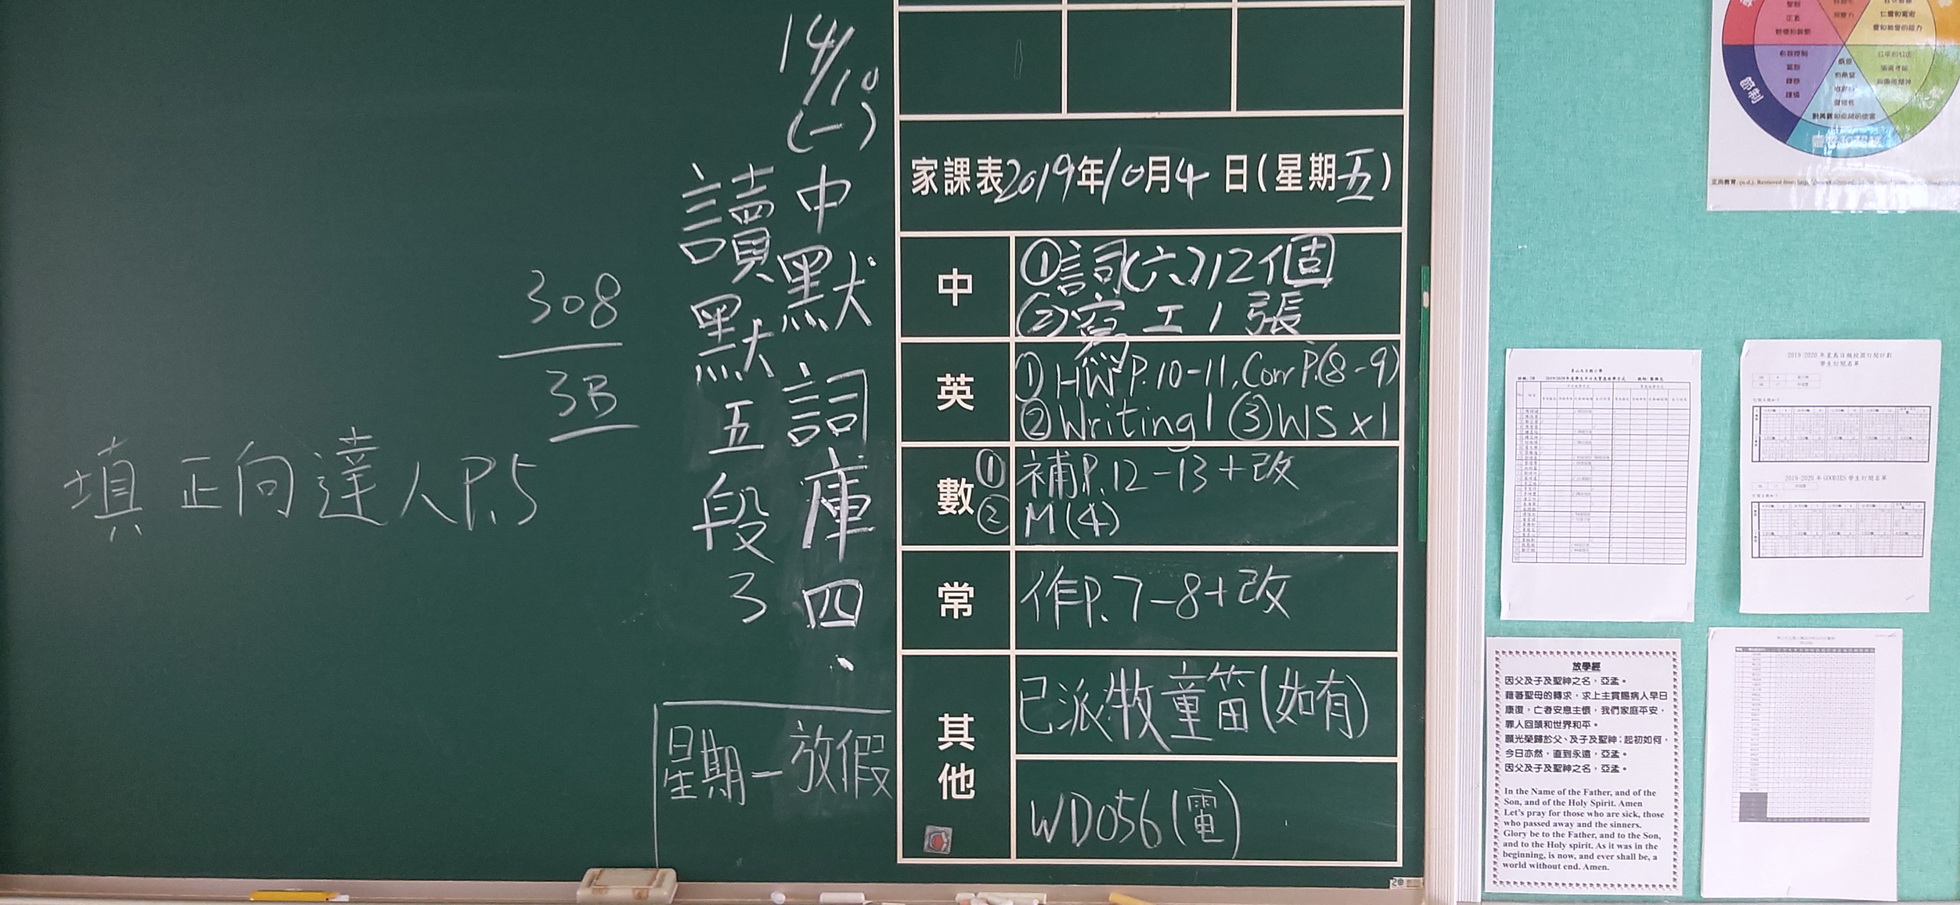 308
3B
填正向達人P.5
14/10
(一)
中默詞庫四.
讀默五段3
星期一放假
家課表2019年10月4日(星期五)
中
①詞(六)12個
②寫工1張
英
①HW P.10-11, Corr P.(8-9)
②Writing1 ③WS x1
數
① 補P.12-13+改
② M(4)
常
作P.7-8+改
其他
已派牧童笛(如有)
WD056(電)
節制
2019-2020 年 GOODIES 學生訂閱名單
放學經
因父及子及聖神之名，亞孟。
藉著聖母的轉求，求上主賞賜病人早日
康復，亡者安息主懷，我們家庭平安，
罪人回頭和世界和平。
願光榮歸於父、及子及聖神；起初如何，
今日亦然，直到永遠，亞孟。
因父及子及聖神之名，亞孟。
In the Name of the Father, and of the
Son, and of the Holy Spirit. Amen
Let's pray for those who are sick, those
who passed away and the sinners.
Glory be to the Father, and to the Son,
and to the Holy spirit. As it was in the
beginning, is now, and ever shall be, a
world without end. Amen.